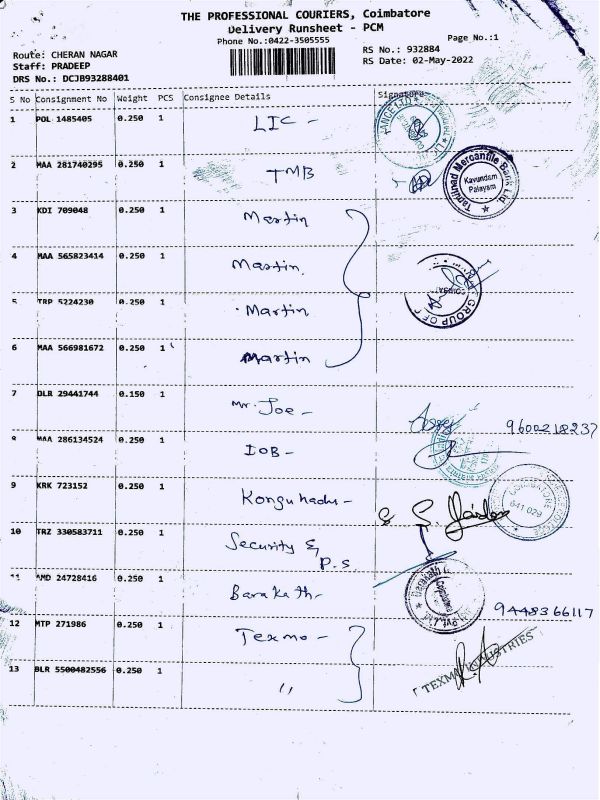 THE PROFESSIONAL COURIERS, Coimbatore
Delivery Runsheet - PCM
Phone No.:0422-3505555
Page No.:1
Route: CHERAN NAGAR
RS No.: 932884
Staff: PRADEEP
RS Date: 02-May-2022
DRS No.: DCJB93288401
S No Consignment No Weight PCS Consignee Details Signature
1 POL 1485405 0.250 1 LIC -
2 MAA 281740295 0.250 1 TMB
Tamilnad Mercantile Bank Ltd
Kavundam
Palayam
3 KDI 709048 0.250 1 Martin
4 MAA 565823414 0.250 1 Martin
5 TRP 5224230 0.250 1 Martin
GROUP OF
6 MAA 566981672 0.250 1 Martin
7 DLR 29441744 0.150 1 Mr. Joe - 9600218237
8 MAA 286134524 0.250 1 IOB -
9 KRK 723152 0.250 1 Kongunadu -
641 029
10 TRZ 330583711 0.250 1 Security &
P.S
11 AMD 24728416 0.250 1 Barakath - 9448366117
12 MTP 271986 0.250 1 Texmo -
TEXMO INDUSTRIES
13 BLR 5500482556 0.250 1 "